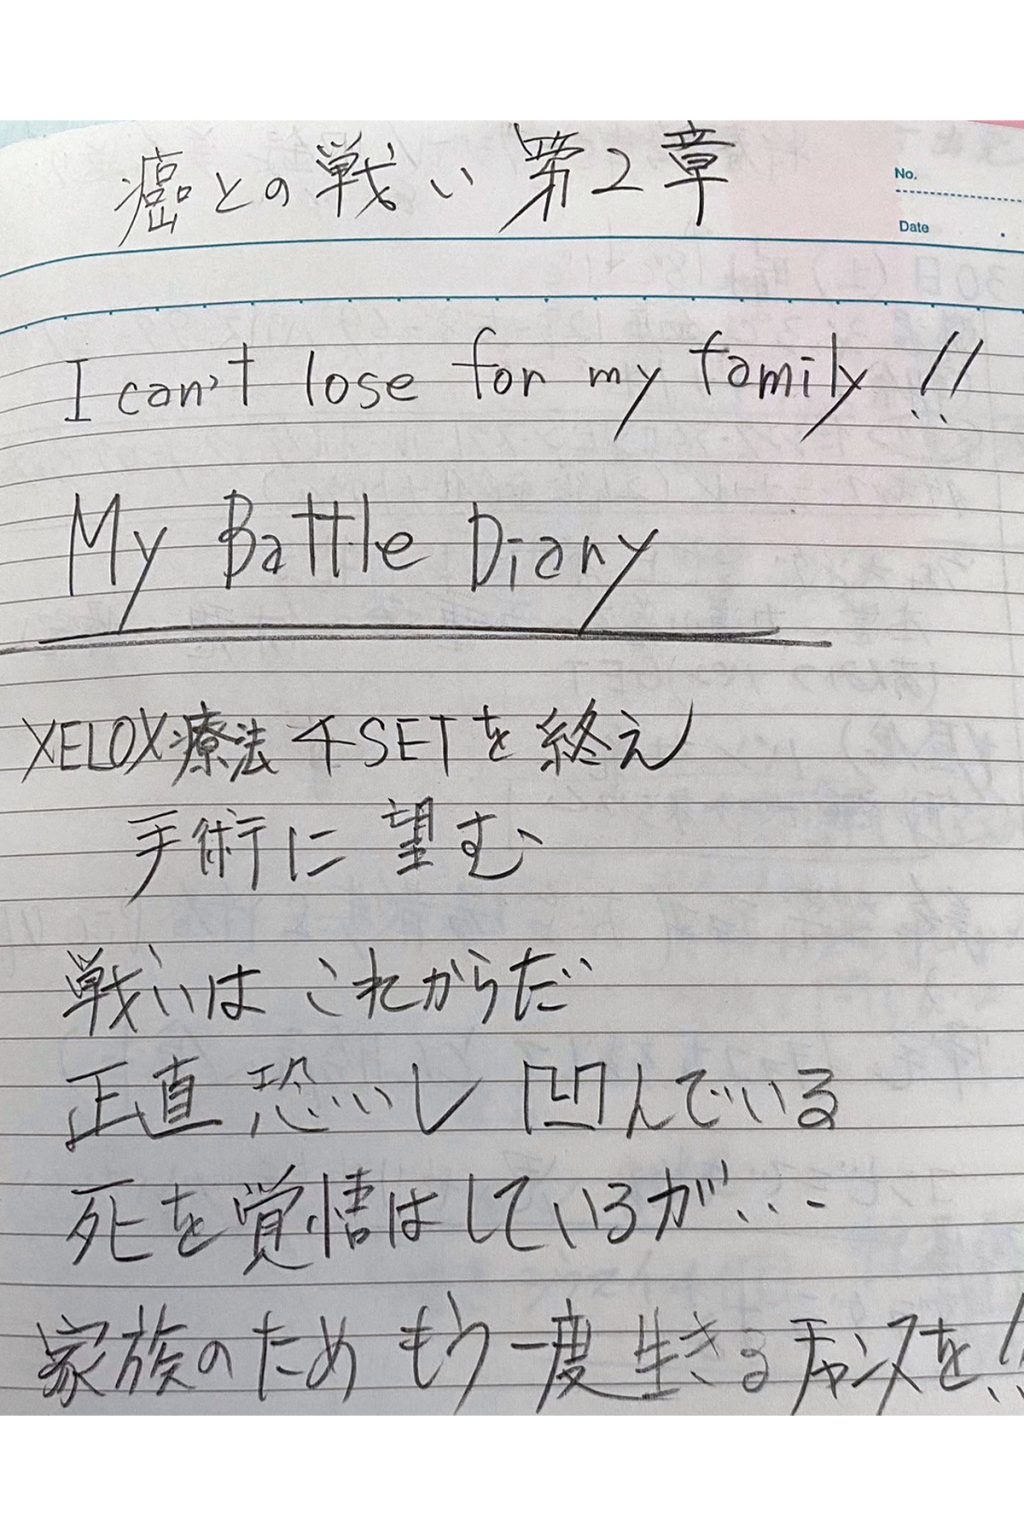 癌との戦い 第2章
No.
Date
I can't lose for my family!!
My Battle Diary
XELOX療法 4SETを終え
手術に望む
戦いはこれからだ
正直恐いし凹んでいる
死を覚悟はしているが...
家族のためもう一度生きるチャンスを!!